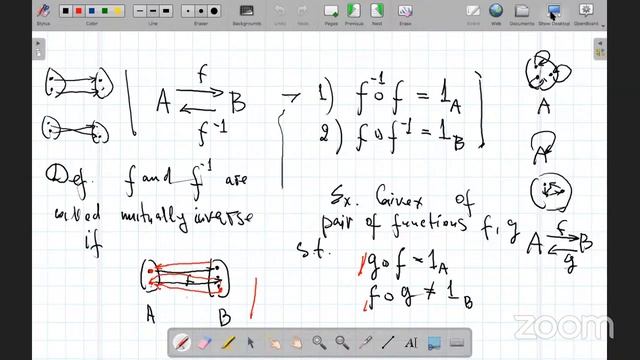 Stylus
Color
Line
Eraser
Backgrounds
Undo
Redo
Pages
Previous
Next
Erase
Board
Web
Documents
Show Desktop
OpenBoard
f
A B
f⁻¹
1) f⁻¹ o f = 1_A
2) f o f⁻¹ = 1_B
A
A
Def. f and f⁻¹ are
called mutually inverse
if
Ex. Give ex of
pair of functions f, g
s t.
g o f = 1_A
f o g ≠ 1_B
f
A B
g
A B
zoom